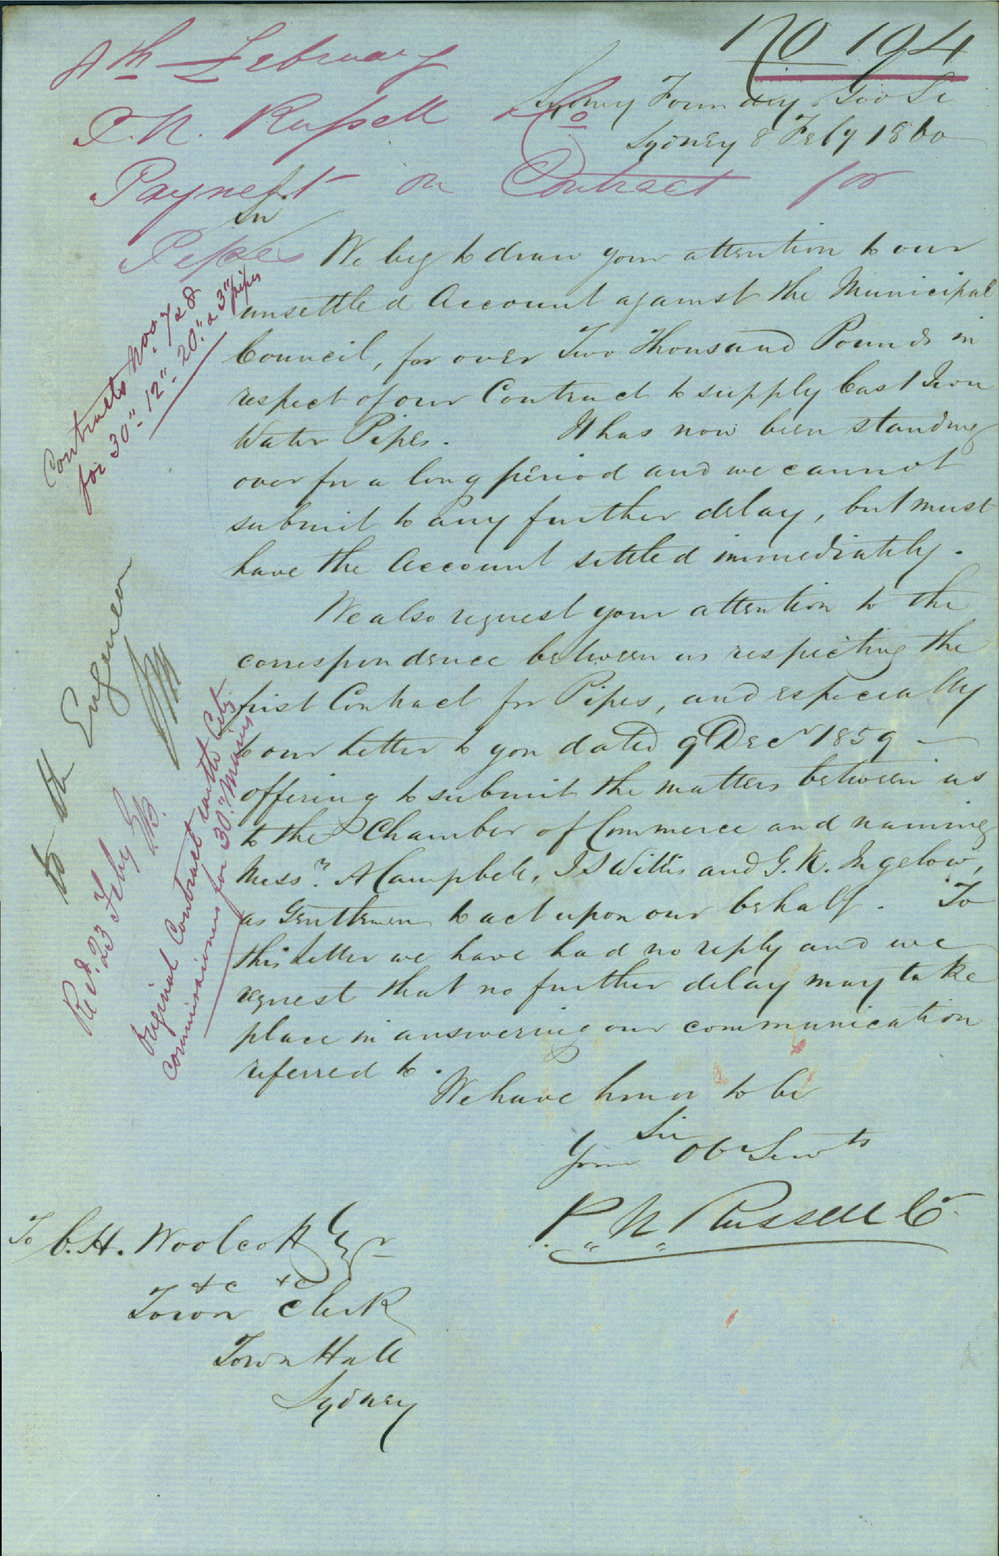 No 194
8th February
P. N. Russell & Co
Payment on Contract for
Pipes
Sydney Foundry Geo St
Sydney 8 Feby 1860
Sir
We beg to draw your attention to our
unsettled Account against the Municipal
Council, for over Two Thousand Pounds in
respect of our Contract to supply Cast Iron
Water Pipes. It has now been standing
over for a long period and we cannot
submit to any further delay, but must
have the Account settled immediately.
We also request your attention to the
correspondence between us respecting the
first Contract for Pipes, and especially
to our Letter to you dated 9 Decr 1859
offering to submit the matters between us
to the Chamber of Commerce and naming
Messrs. A Campbell, J S Willis and G. K. Ingelow,
as Gentlemen to act upon our behalf. To
this Letter we have had no reply and we
request that no further delay may take
place in answering our communication
referred to.
We have honor to be
Sir
Your Ob Servts
P. N. Russell Co
To C. H. Woolcott Esqr
&c &c
Town Clerk
Town Hall
Sydney
Contracts Nos. 7 & 8
for 30" 12" 20" & 3" pipes
to the Engineer
Recd. 23 Feby
Original Contract with City
Commissioners for 30" Mains